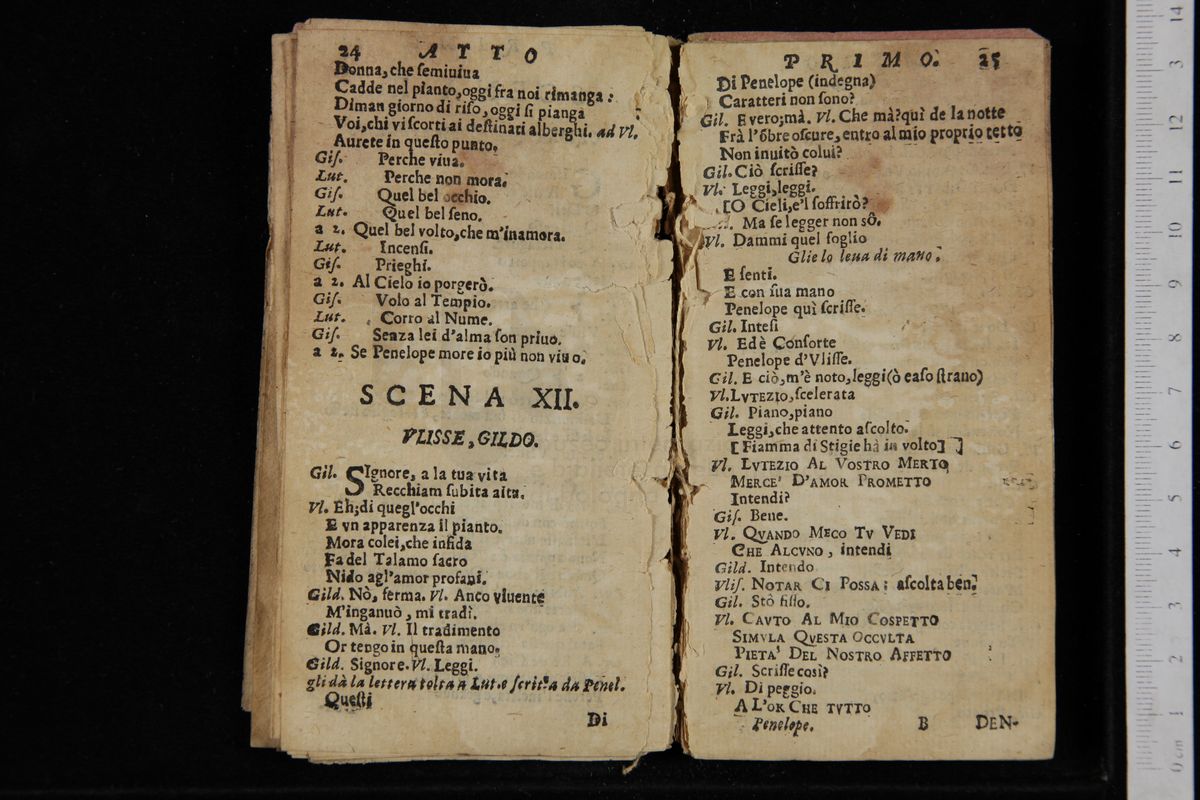 24 ATTO
Donna, che semiuiua
Cadde nel pianto, oggi fra noi rimanga:
Diman giorno di riso, oggi si pianga
Voi, chi vi scorti ai destinati alberghi. ad Vl.
Aurete in questo punto.
Gis. Perche viua.
Lut. Perche non mora.
Gis. Quel bel occhio.
Lut. Quel bel seno.
a 2. Quel bel volto, che m'inamora.
Lut. Incensi.
Gis. Prieghi.
a 2. Al Cielo io porgerò.
Gis. Volo al Tempio.
Lut. Corro al Nume.
Gis. Senza lei d'alma son priuo.
a 2. Se Penelope more io più non viuo.
SCENA XII.
VLISSE, GILDO.
Gil. SIgnore, a la tua vita
Recchiam subita aita.
Vl. Eh; di quegl'occhi
E vn apparenza il pianto.
Mora colei, che infida
Fa del Talamo sacro
Nido agl'amor profani.
Gild. Nò, ferma. Vl. Anco viuente
M'inganuò, mi tradì.
Gild. Mà. Vl. Il tradimento
Or tengo in questa mano.
Gild. Signore. Vl. Leggi.
gli dà la lettera tolta a Lut. e scritta da Penel.
Questi
Di
PRIMO. 25
Di Penelope (indegna)
Caratteri non sono?
Gil. E vero; mà. Vl. Che mà? quì de la notte
Frà l'õbre oscure, entro al mio proprio tetto
Non inuitò colui?
Gil. Ciò scrisse?
Vl. Leggi, leggi.
[O Cieli, e'l soffrirò?
Ma se legger non sô.
Vl. Dammi quel foglio
Glie lo leua di mano.
E senti.
E con sua mano
Penelope quì scrisse.
Gil. Intesi
Vl. Ed è Consorte
Penelope d'Vlisse.
Gil. E ciò, m'è noto, leggi (ò caso strano)
Vl. LVTEZIO, scelerata
Gil. Piano, piano
Leggi, che attento ascolto.
[Fiamma di Stigie hà in volto] ]
Vl. LVTEZIO AL VOSTRO MERTO
MERCE' D'AMOR PROMETTO
Intendi?
Gis. Bene.
Vl. QVANDO MECO TV VEDI
CHE ALCVNO, intendi
Gild. Intendo
Vlis. NOTAR CI POSSA: ascolta ben.
Gil. Stò fisso.
Vl. CAVTO AL MIO COSPETTO
SIMVLA QVESTA OCCVLTA
PIETA' DEL NOSTRO AFFETTO
Gil. Scrisse così?
Vl. Di peggio.
A L'OR CHE TVTTO
Penelope. B DEN-